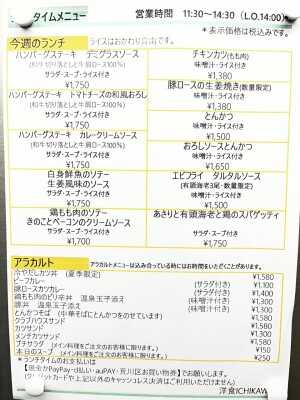 タイムメニュー
営業時間 11:30~14:30 (L.O.14:00)
*表示価格は税込みです。
今週のランチ ライスはおかわり自由です。
ハンバーグステーキ デミグラスソース
(和牛切り落としと牛肩ロース100%)
サラダ・スープ・ライス付き
¥1,750
ハンバーグステーキ トマトチーズの和風おろし
(和牛切り落としと牛肩ロース100%)
サラダ・スープ・ライス付き
¥1,750
ハンバーグステーキ カレークリームソース
(和牛切り落としと牛肩ロース100%)
サラダ・スープ・ライス付き
¥1,750
白身鮮魚のソテー
生姜風味のソース
サラダ・スープ・ライス付き
¥1,750
鶏もも肉のソテー
きのことベーコンのクリームソース
サラダ・スープ・ライス付き
¥1,700
チキンカツ(もも肉)
味噌汁・ライス付き
¥1,380
豚ロースの生姜焼き(数量限定)
味噌汁・ライス付き
¥1,380
とんかつ
味噌汁・ライス付き
¥1,500
おろしソースとんかつ
味噌汁・ライス付き
¥1,650
エビフライ タルタルソース
(有頭海老3尾・数量限定)
味噌汁・ライス付き
¥1,750
あさりと有頭海老と鶏のスパゲッティ
サラダ付き
¥1,750
アラカルト アラカルトメニューは込み合っている時にはお時間をいただきことがあります。
冷やだしカツ丼 (夏季限定) ¥1,580
ビーフカレー (サラダ付き) ¥1,100
豚ロースカツカレー (サラダ付き) ¥1,400
鶏もも肉のピリ辛丼 温泉玉子添え (味噌汁付き) ¥1,300
豚丼 温泉玉子添え (味噌汁付き) ¥1,300
とんかつそば (中華そばにとんかつをのせています)
クラブハウスサンド ¥1,580
カツサンド
メンチカツサンド
プチサラダ (メイン料理をご注文のお客様に限ります)
本日のスープ (メイン料理をご注文のお客様に限ります) ¥250
*ランチタイムのお支払いは
【現金かPayPay・d払い・auPAY・荒川区お買い物券】でお願いします。
洋食ICHIKAWA